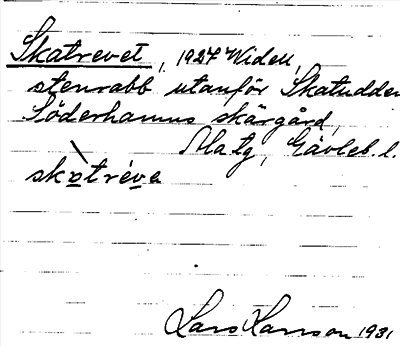 Skatrevet, 1927 Widell,
stenrabb utanför Skatudden
Söderhamns skärgård,
Matg, Gävleb. l.
skòtréve
Lars Larsson 1931